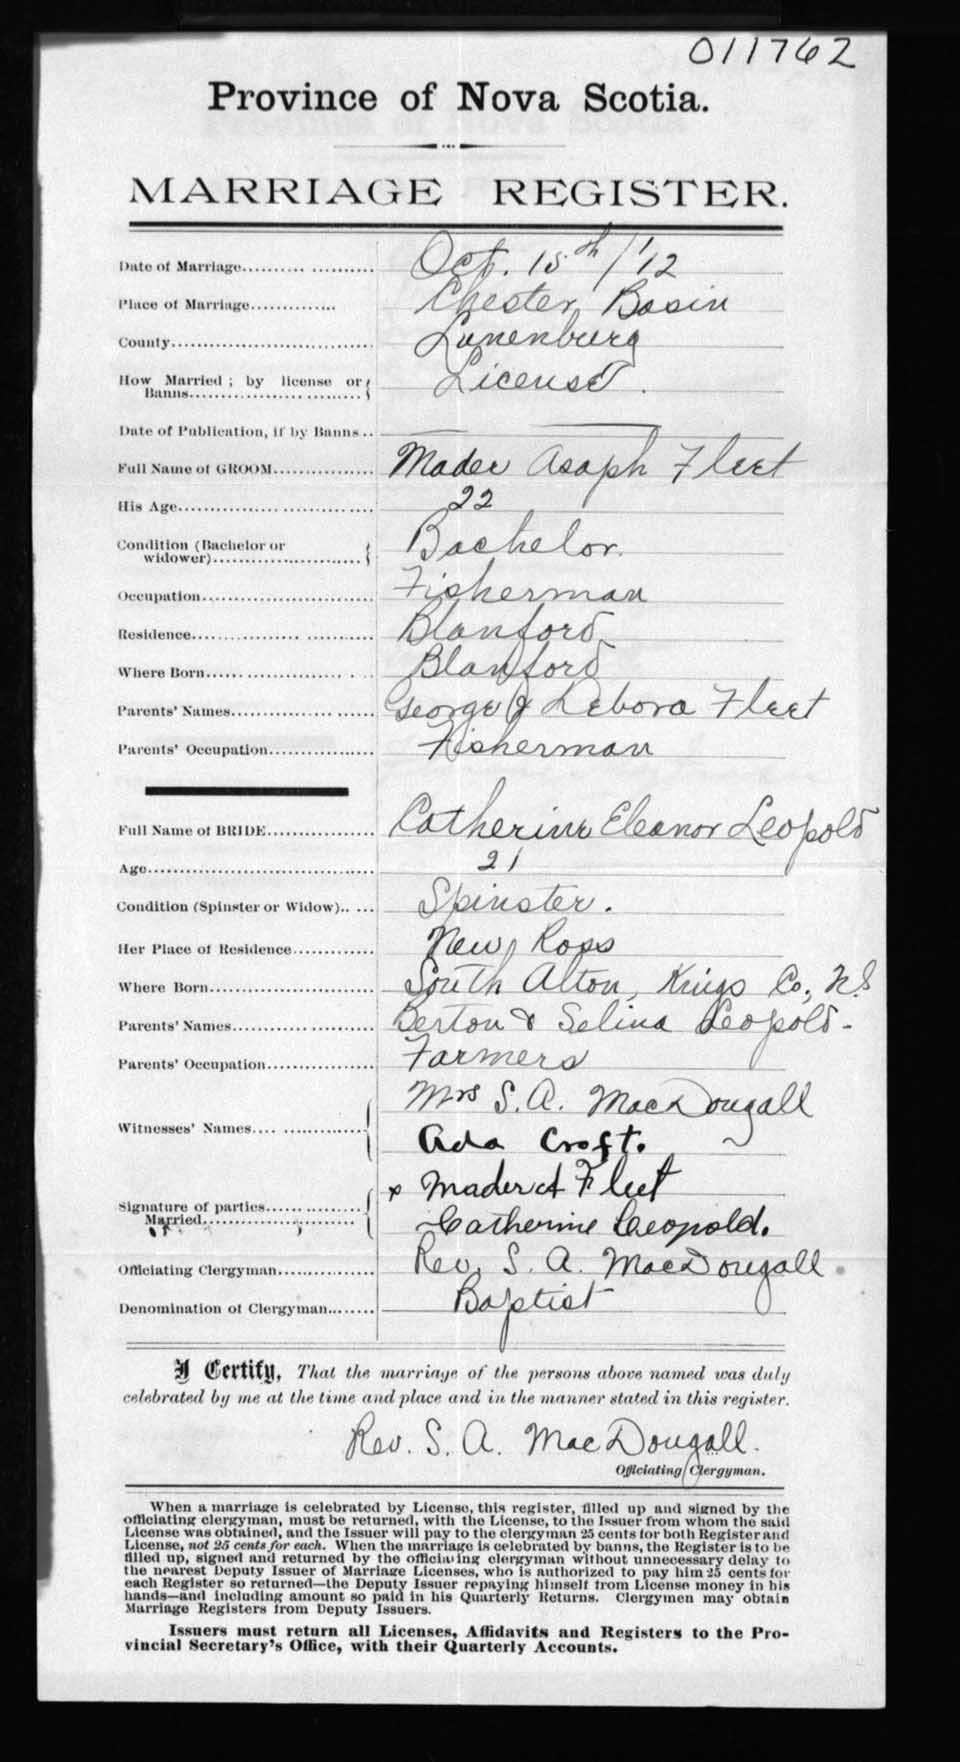 011762
Province of Nova Scotia.
MARRIAGE REGISTER.
Date of Marriage.................... Oct. 15th/'12
Place of Marriage............. Chester Basin
County................................ Lunenburg
How Married; by license or
Banns............................. License.
Date of Publication, if by Banns.. — —
Full Name of GROOM................ Mader Asaph Fleet
His Age............................... 22
Condition (Bachelor or
widower)......................... Bachelor.
Occupation............................ Fisherman
Residence........................... Blanford
Where Born......................... Blanford
Parents' Names...................... George & Debora Fleet
Parents' Occupation................. Fisherman
Full Name of BRIDE................. Catherine Eleanor Leopold
Age.................................... 21
Condition (Spinster or Widow)..... Spinster.
Her Place of Residence............. New Ross
Where Born.......................... South Alton, Kings Co., N.S
Parents' Names...................... Berton & Selina Leopold-
Parents' Occupation................. Farmers
Mrs S. A. MacDougall
Witnesses' Names....................
Ada Croft.
x Mader A Fleet
Signature of parties...............
Married......................... Catherine Leopold.
Officiating Clergyman............... Rev. S. A. MacDougall
Denomination of Clergyman........ Baptist
I Certify, That the marriage of the persons above named was duly
celebrated by me at the time and place and in the manner stated in this register.
Rev. S. A. MacDougall.
Officiating Clergyman.
When a marriage is celebrated by License, this register, filled up and signed by the
officiating clergyman, must be returned, with the License, to the Issuer from whom the said
License was obtained, and the Issuer will pay to the clergyman 25 cents for both Register and
License, not 25 cents for each. When the marriage is celebrated by banns, the Register is to be
filled up, signed and returned by the officiating clergyman without unnecessary delay to
the nearest Deputy Issuer of Marriage Licenses, who is authorized to pay him 25 cents for
each Register so returned—the Deputy Issuer repaying himself from License money in his
hands—and including amount so paid in his Quarterly Returns. Clergymen may obtain
Marriage Registers from Deputy Issuers.
Issuers must return all Licenses, Affidavits and Registers to the Pro-
vincial Secretary's Office, with their Quarterly Accounts.